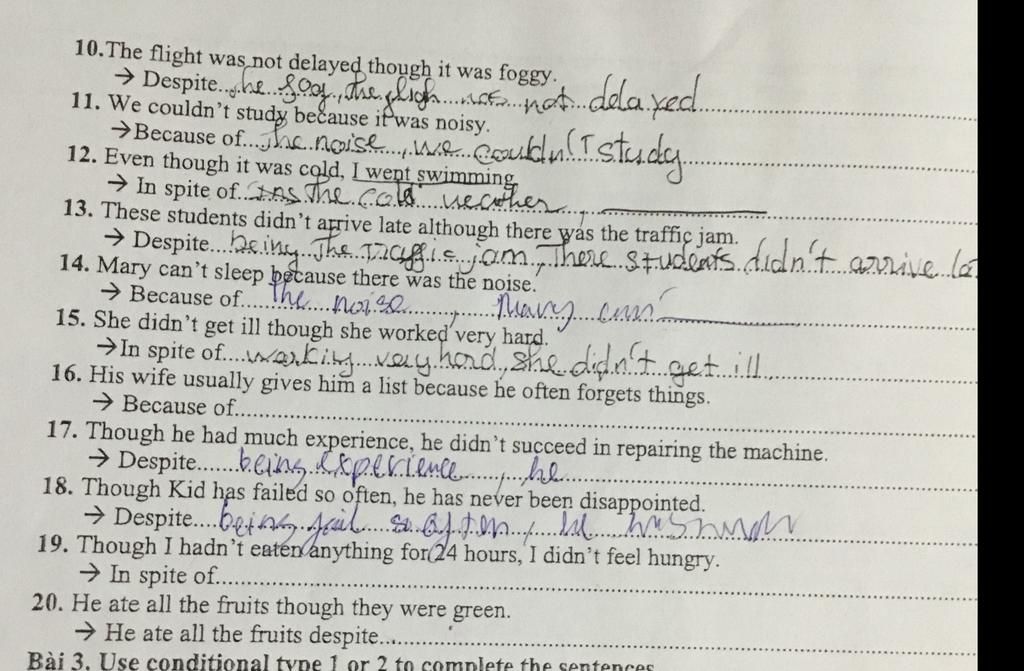 10.The flight was not delayed though it was foggy.
→ Despite..the fog, the fligh was not delayed
11. We couldn't study because it was noisy.
→Because of...the noise, we couldn't study
12. Even though it was cold, I went swimming
→ In spite of the cold weather,
13. These students didn't arrive late although there was the traffic jam.
→ Despite...being the traffic jam, There students didn't arrive la
14. Mary can't sleep because there was the noise.
→ Because of the noise, Mary can'
15. She didn't get ill though she worked very hard.
→In spite of...working very hard, she didn't get ill
16. His wife usually gives him a list because he often forgets things.
→ Because of
17. Though he had much experience, he didn't succeed in repairing the machine.
→ Despite......being experience, he
18. Though Kid has failed so often, he has never been disappointed.
→ Despite....being fail so often, he
19. Though I hadn't eaten anything for 24 hours, I didn't feel hungry.
→ In spite of
20. He ate all the fruits though they were green.
→ He ate all the fruits despite
Bài 3. Use conditional type 1 or 2 to complete the sentences